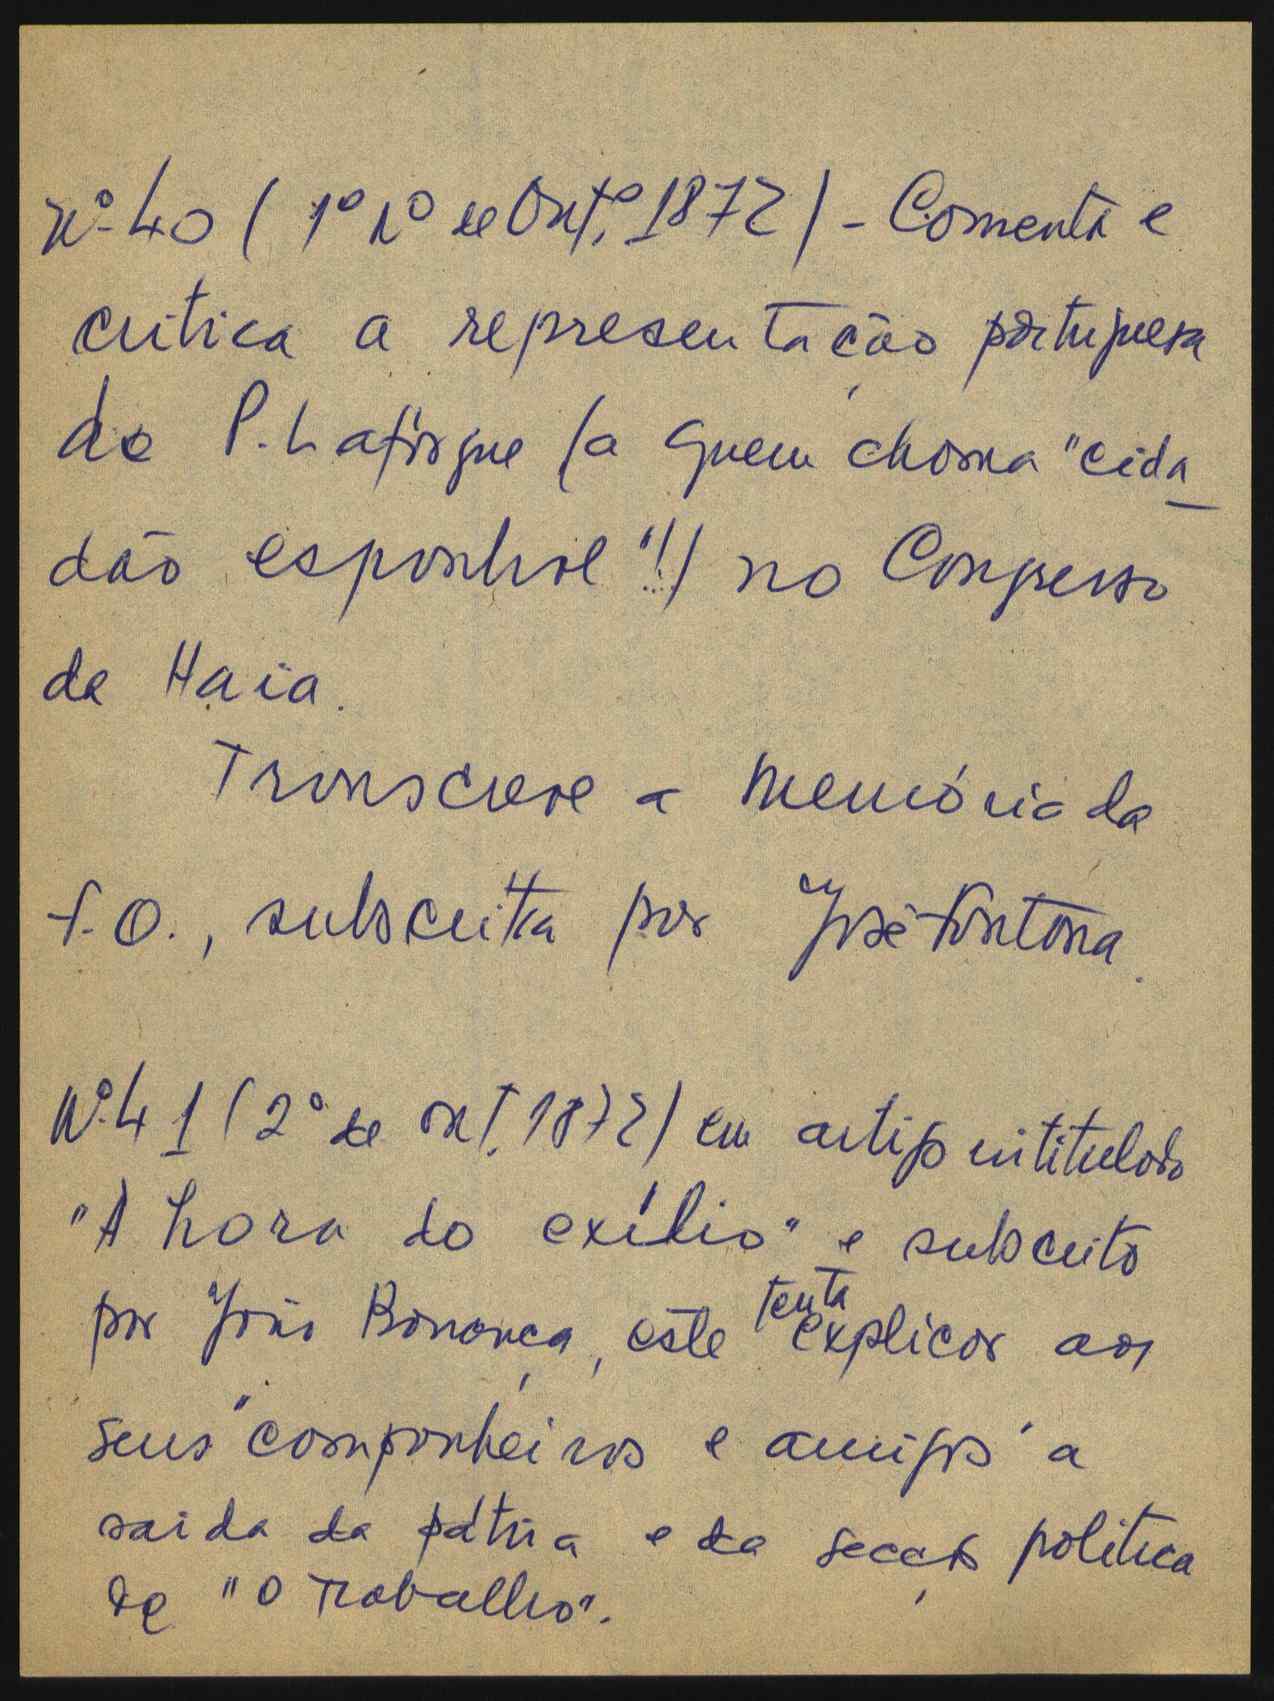 Nº 40 (1º nº de Outº. 1872) - Comenta e
critica a representação portuguesa
de P. Lafargue (a quem chama "cida_
dão espanhol"!!) no Congresso
de Haia.
Transcreve a memória da
F. O., subscritta por José Fontana.
Nº 41 (2º de Out. 1872) em artigo intitulado
"A hora do exílio" e subscrito
por João Bonança, este tenta explicar aos
seus "companheiros e amigos" a
saida da pátria e da secção politica
de "O Trabalho".